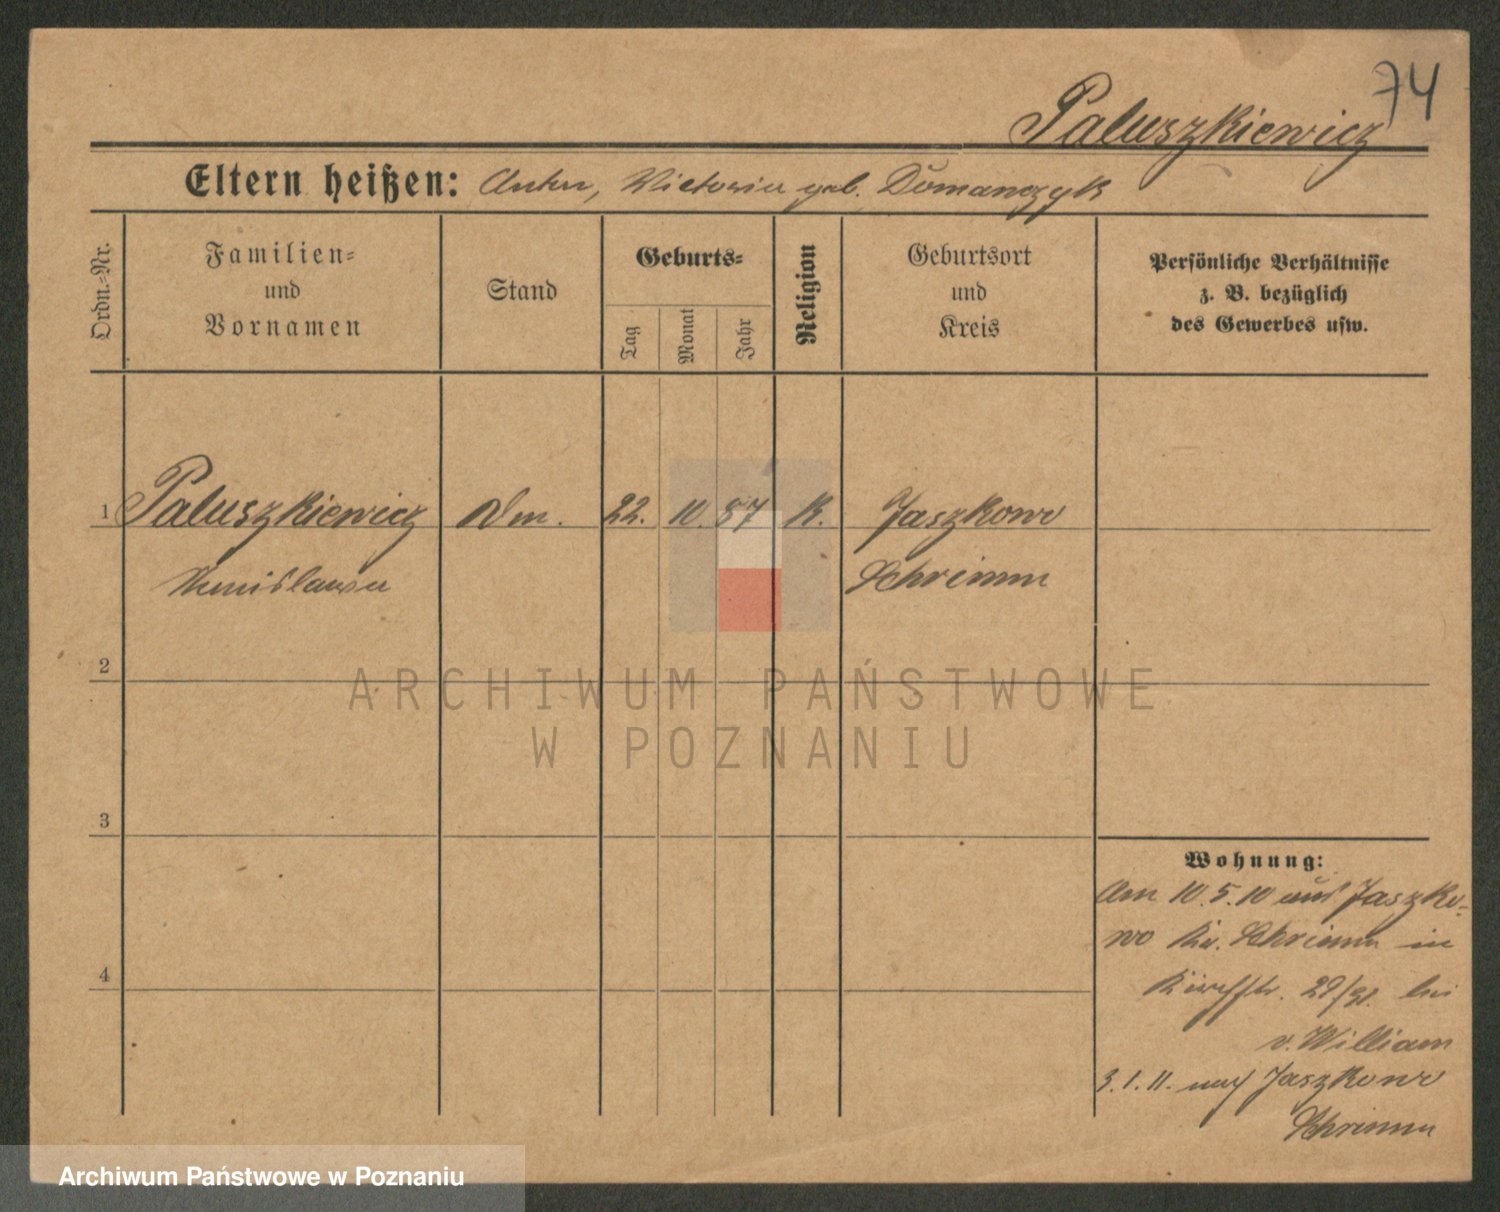 74
Paluszkiewicz
Eltern heißen: Anton, Victoria geb. Domanczyk
Ordn.-Nr.
Familien-
und
Vornamen
Stand
Geburts-
Tag
Monat
Jahr
Religion
Geburtsort
und
Kreis
Persönliche Verhältnisse
z. B. bezüglich
des Gewerbes usw.
1 Paluszkiewicz Dm. 22. 10. 87 K. Jaszkowo
Stanislawa Schrimm
2
ARCHIWUM PAŃSTWOWE
W POZNANIU
3
4
Wohnung:
Am 10.5.10 aus Jaszko-
wo Kr. Schrimm in
bei
v. William
3.1.11. nach Jaszkowo
Schrimm
Archiwum Państwowe w Poznaniu